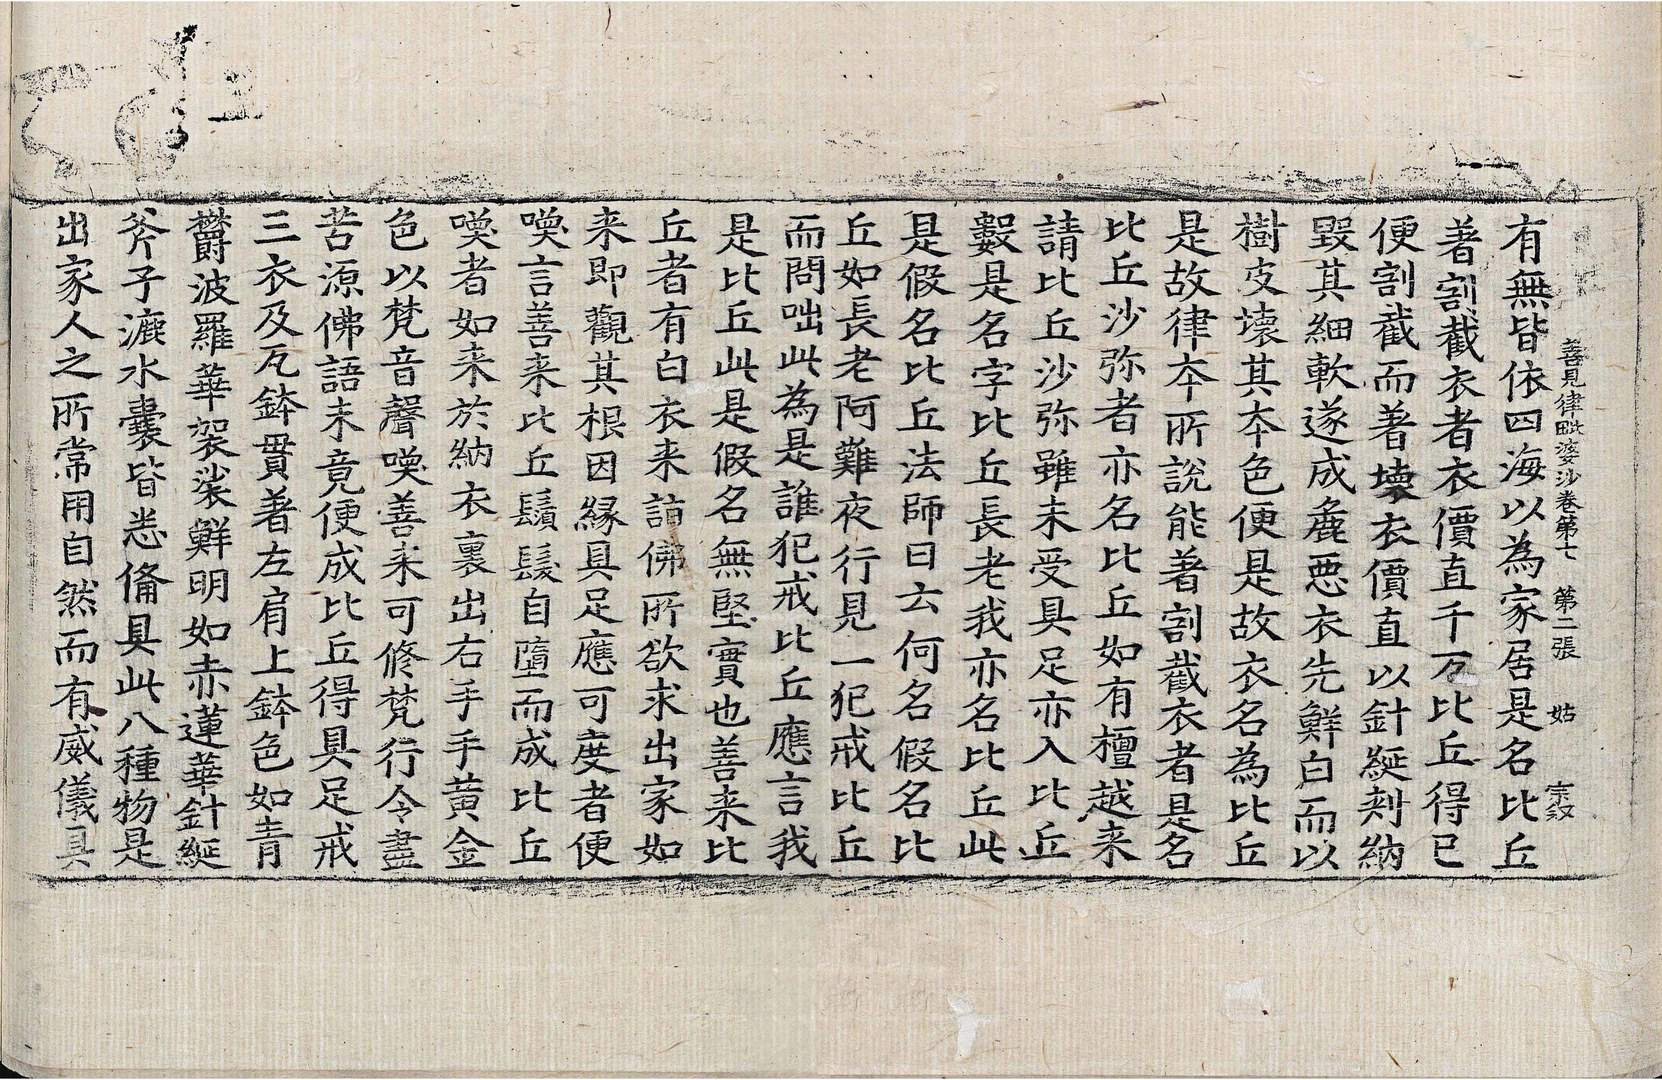 善見律毗婆沙卷第七 第二張 姑 宗叙
有無皆依四海以為家居是名比丘
著割截衣者衣價直千万比丘得已
便割截而著壞衣價直以針綖刾納
毀其細軟遂成麁惡衣先鮮白而以
樹皮壞其夲色便是故衣名為比丘
是故律夲所說能著割截衣者是名
比丘沙弥者亦名比丘如有檀越来
請比丘沙弥雖未受具足亦入比丘
數是名字比丘長老我亦名比丘此
是假名比丘法師曰云何名假名比
丘如長老阿難夜行見一犯戒比丘
而問咄此為是誰犯戒比丘應言我
是比丘此是假名無堅實也善来比
丘者有白衣来詣佛所欲求出家如
来即觀其根因緣具足應可度者便
喚言善来比丘鬚髮自墮而成比丘
喚者如来於納衣裏出右手手黄金
色以梵音聲喚善来可修梵行令盡
苦源佛語未竟便成比丘得具足戒
三衣及瓦鉢貫著左肩上鉢色如青
欝波羅華袈裟鮮明如赤蓮華針綖
斧子漉水囊皆悉俻具此八種物是
出家人之所常用自然而有威儀具